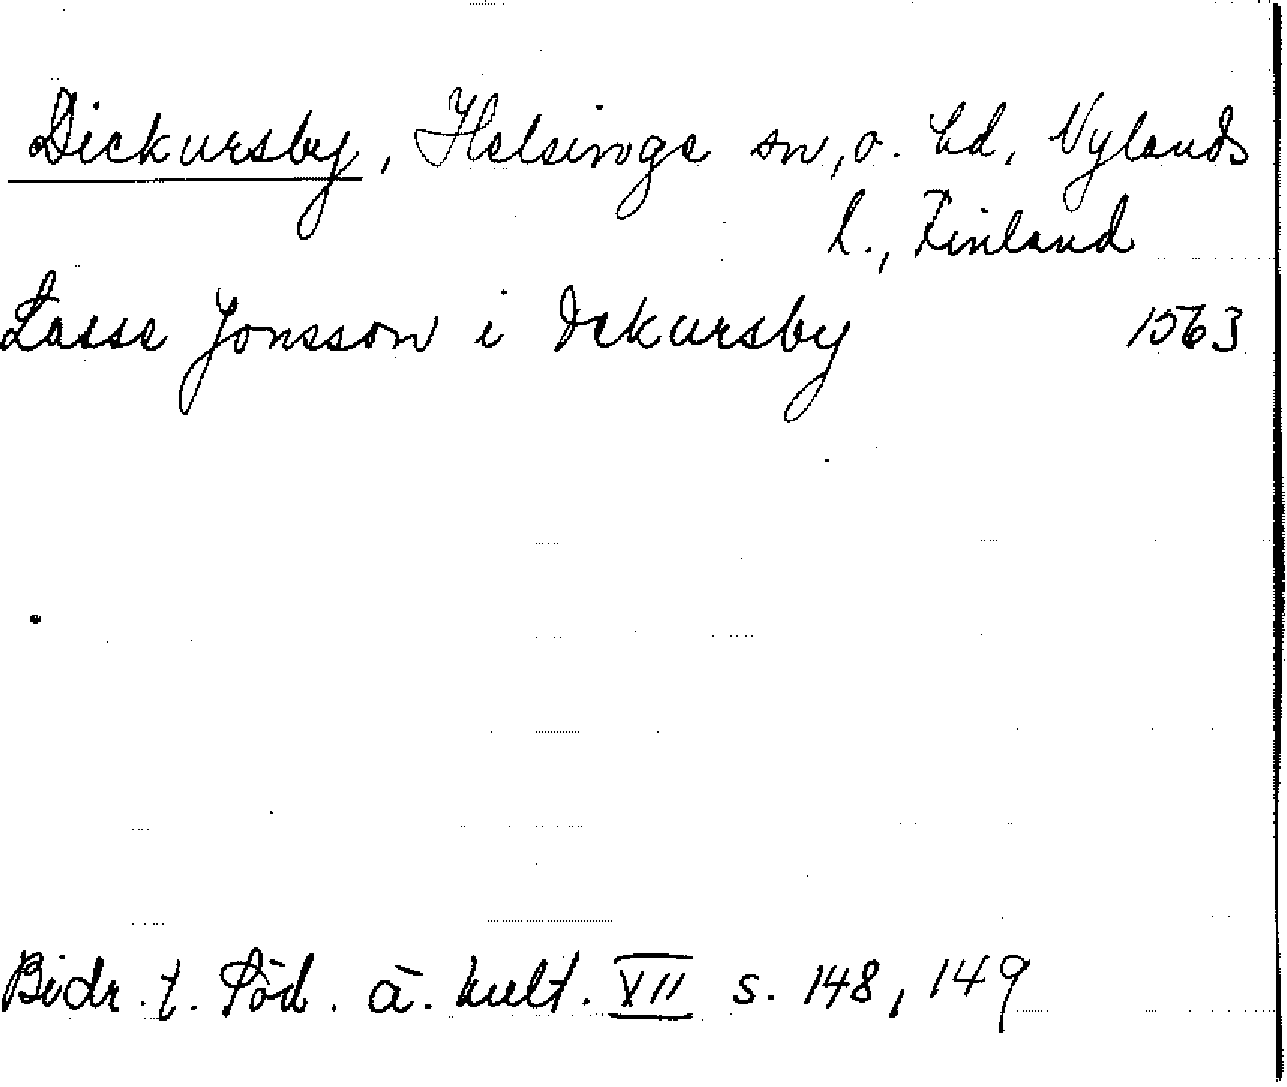 Dickursby, Helsinge sn, o. hd, Nylands
l., Finland
Lasse Jonsson i Dekursby 1563
Bidr. t. Söd. ä. kult. VII s. 148, 149